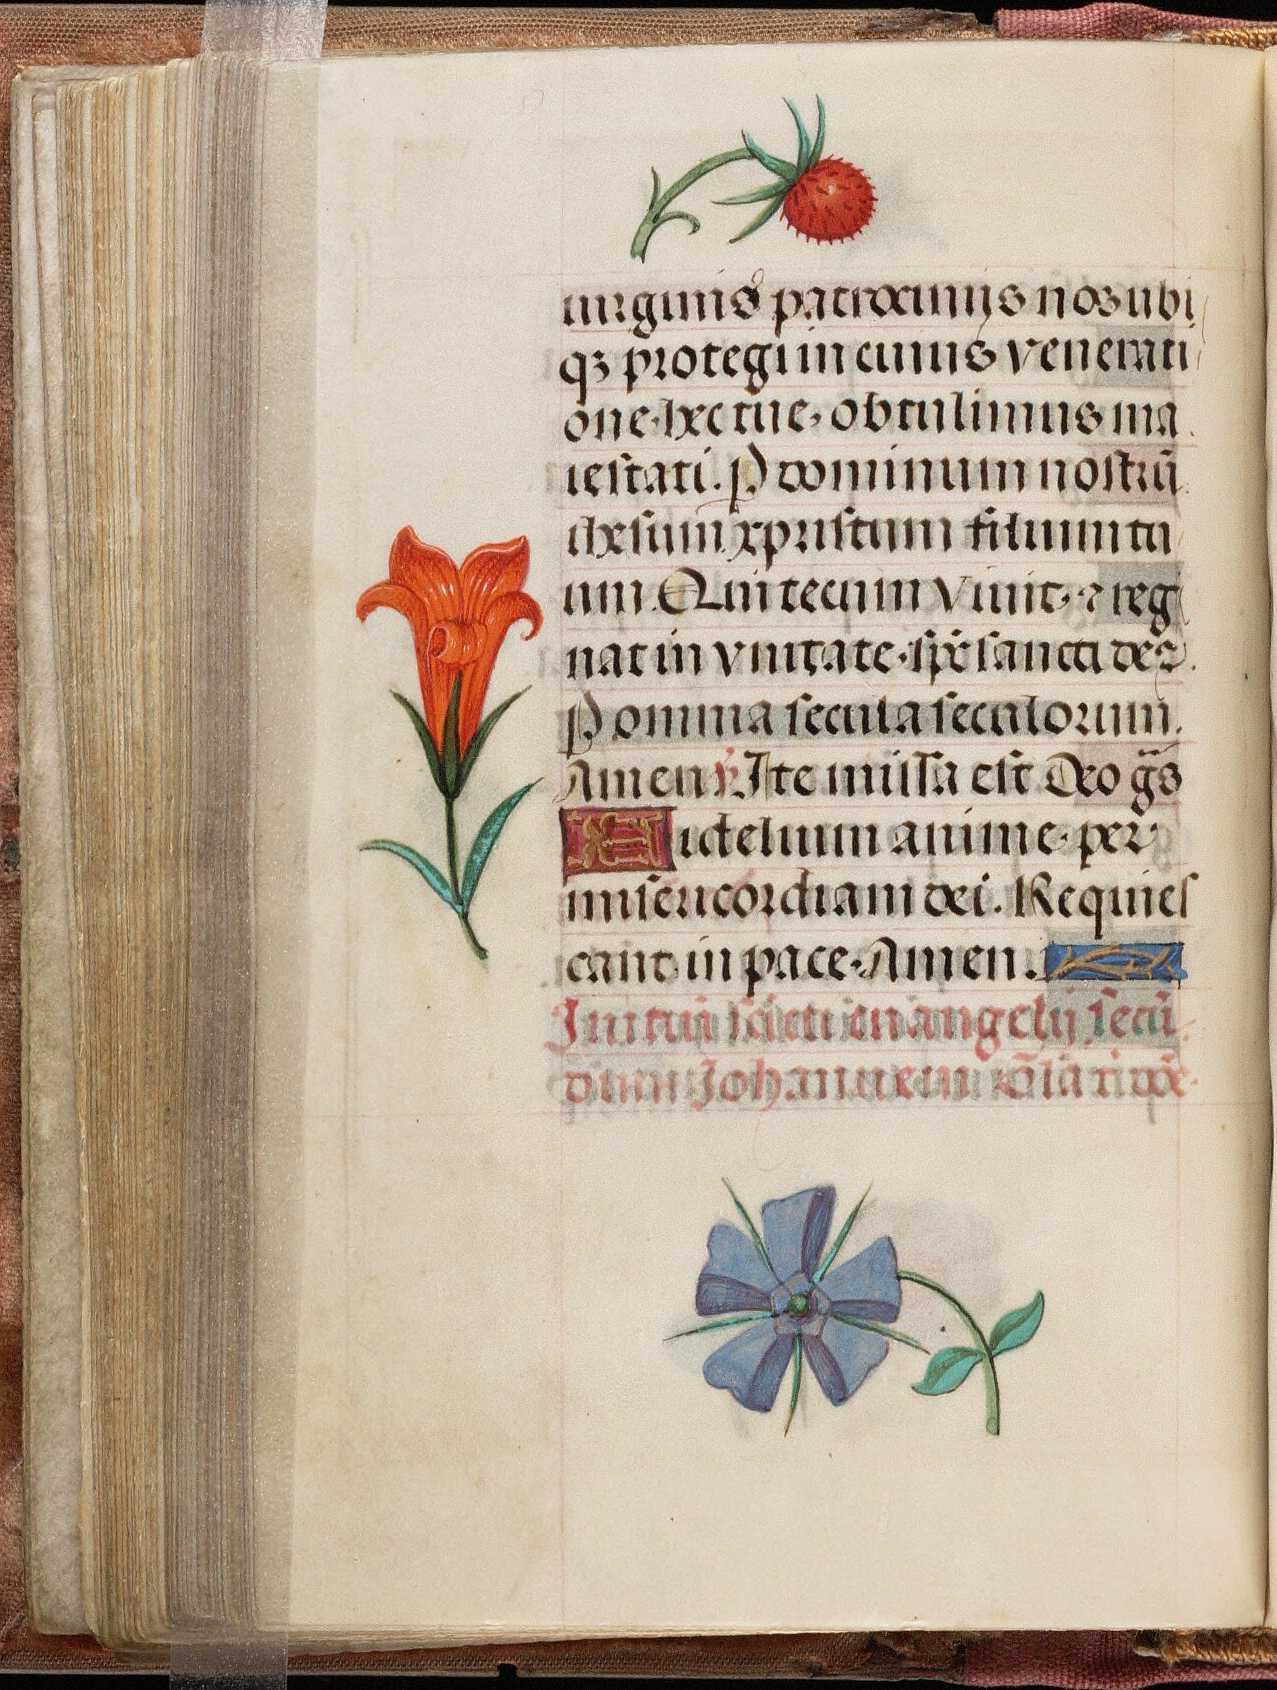 uirginis patrocinijs nos ubi
qꝫ protegi in cuius venerati
one hec tue obtulimus ma
iestati. P dominum nostrũ
ihesum xpristum filium tu
um Qui tecum viuit ⁊ reg
nat in vnitate sp̃s sancti deꝰ
P omnia secula seculorum.
Amen ℣ Ite missa est Deo gr̃s
Fidelium anime per
misericordiam dei. Requies
cant in pace Amen.
Initiũ sancti euangelij secũ
dum Johannem gl̃ia t dñe